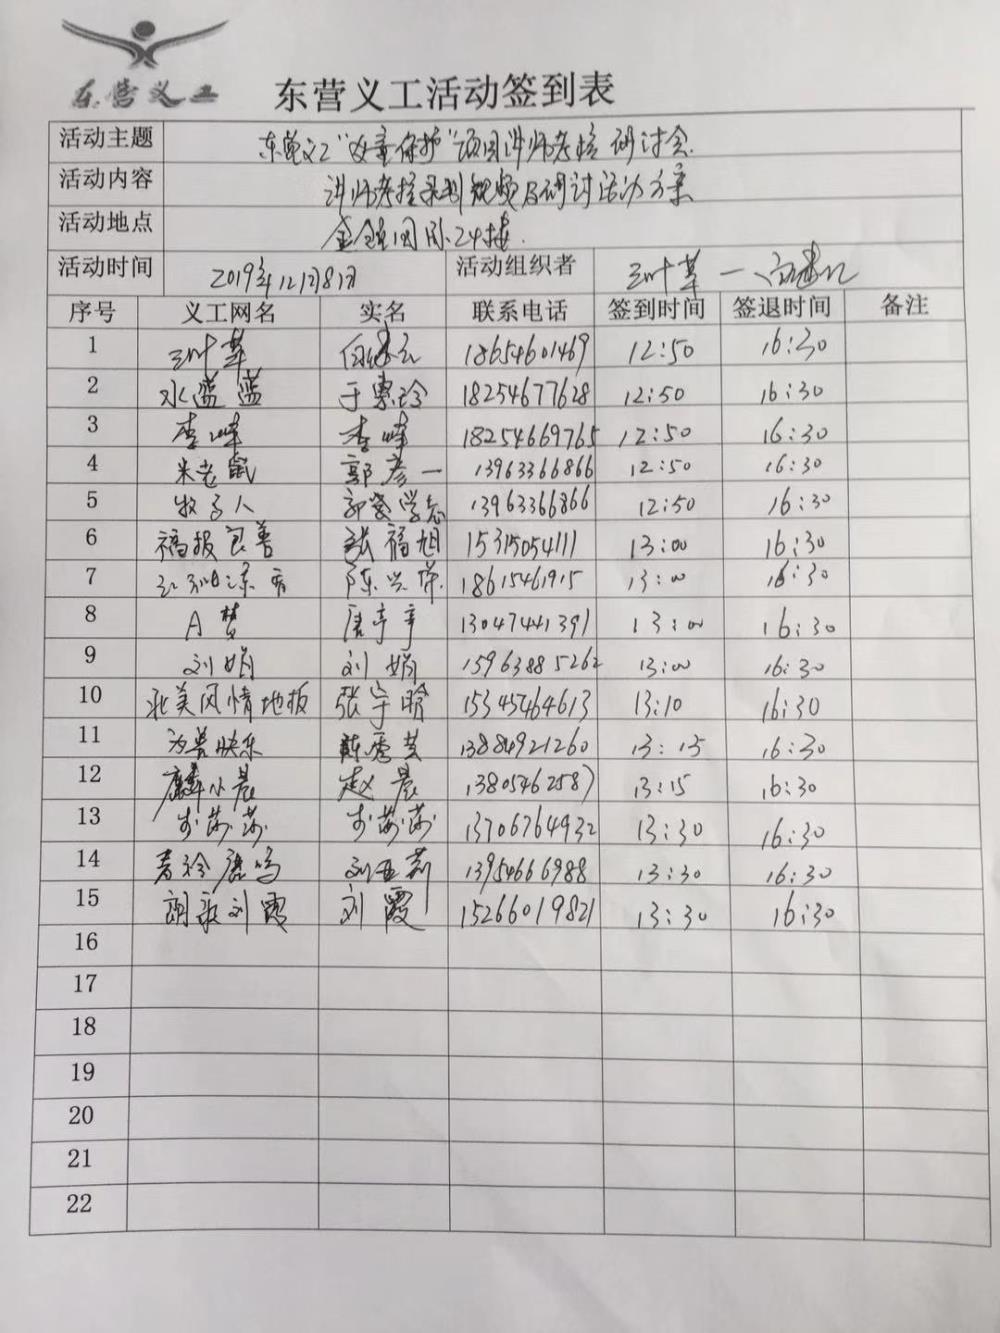 东营义工
东营义工活动签到表
活动主题 东营义工“女童保护”项目讲师考核研讨会.
活动内容 讲师考核录制视频及研讨活动方案
活动地点 24楼.
活动时间 2019年12月8日 活动组织者 三叶草
序号 义工网名 实名 联系电话 签到时间 签退时间 备注
1 三叶草 18654601469 12:50 16:30
2 水蓝蓝 于惠玲 18254677628 12:50 16:30
3 李峰 李峰 18254669765 12:50 16:30
4 米老鼠 郭彦一 13963366866 12:50 16:30
5 牧马人 13963366866 12:50 16:30
6 福报良善 张福旭 15315054111 13:00 16:30
7 陈兴荣 18615461915 13:00 16:30
8 A梦 唐亭亭 13047441391 13:00 16:30
9 刘娟 刘娟 15963885262 13:00 16:30
10 北美风情地板 张宇晗 15345464613 13:10 16:30
11 为善快乐 陈秀芸 13884921260 13:15 16:30
12 麟小晨 赵晨 13805462587 13:15 16:30
13 李莎莎 李莎莎 13706764932 13:30 16:30
14 青衿鹿鸣 刘亚莉 13954666988 13:30 16:30
15 朗歌刘霞 刘霞 15266019821 13:30 16:30
16
17
18
19
20
21
22